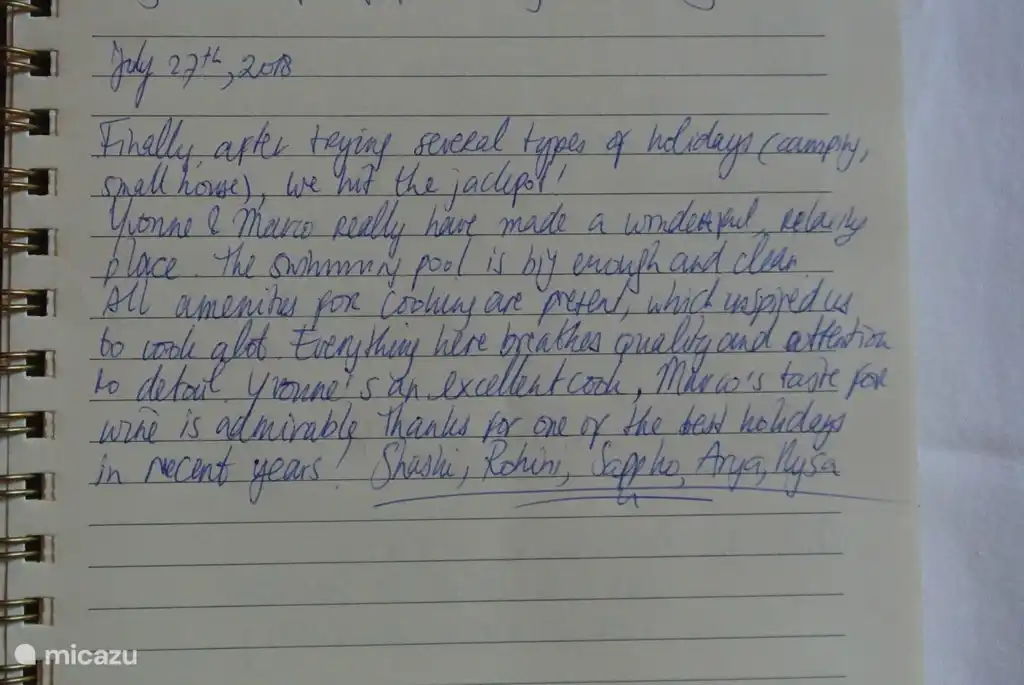 July 27th, 2018
Finally, after trying several types of holidays (camping,
small house), we hit the jackpot!
Yvonne & Marco really have made a wonderful, relaxing
place. The swimming pool is big enough and clean.
All amenities for cooking are present, which inspired us
to cook a lot. Everything here breathes quality and attention
to detail. Yvonne's an excellent cook, Marco's taste for
wine is admirable. Thanks for one of the best holidays
in recent years! Shashi, Rohini, Sappho, Arya,
micazu